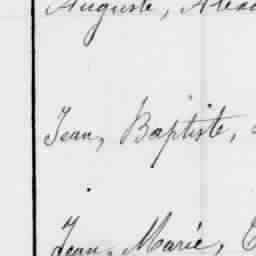 Auguste,
Jean, Baptiste,
Jean, Marie,